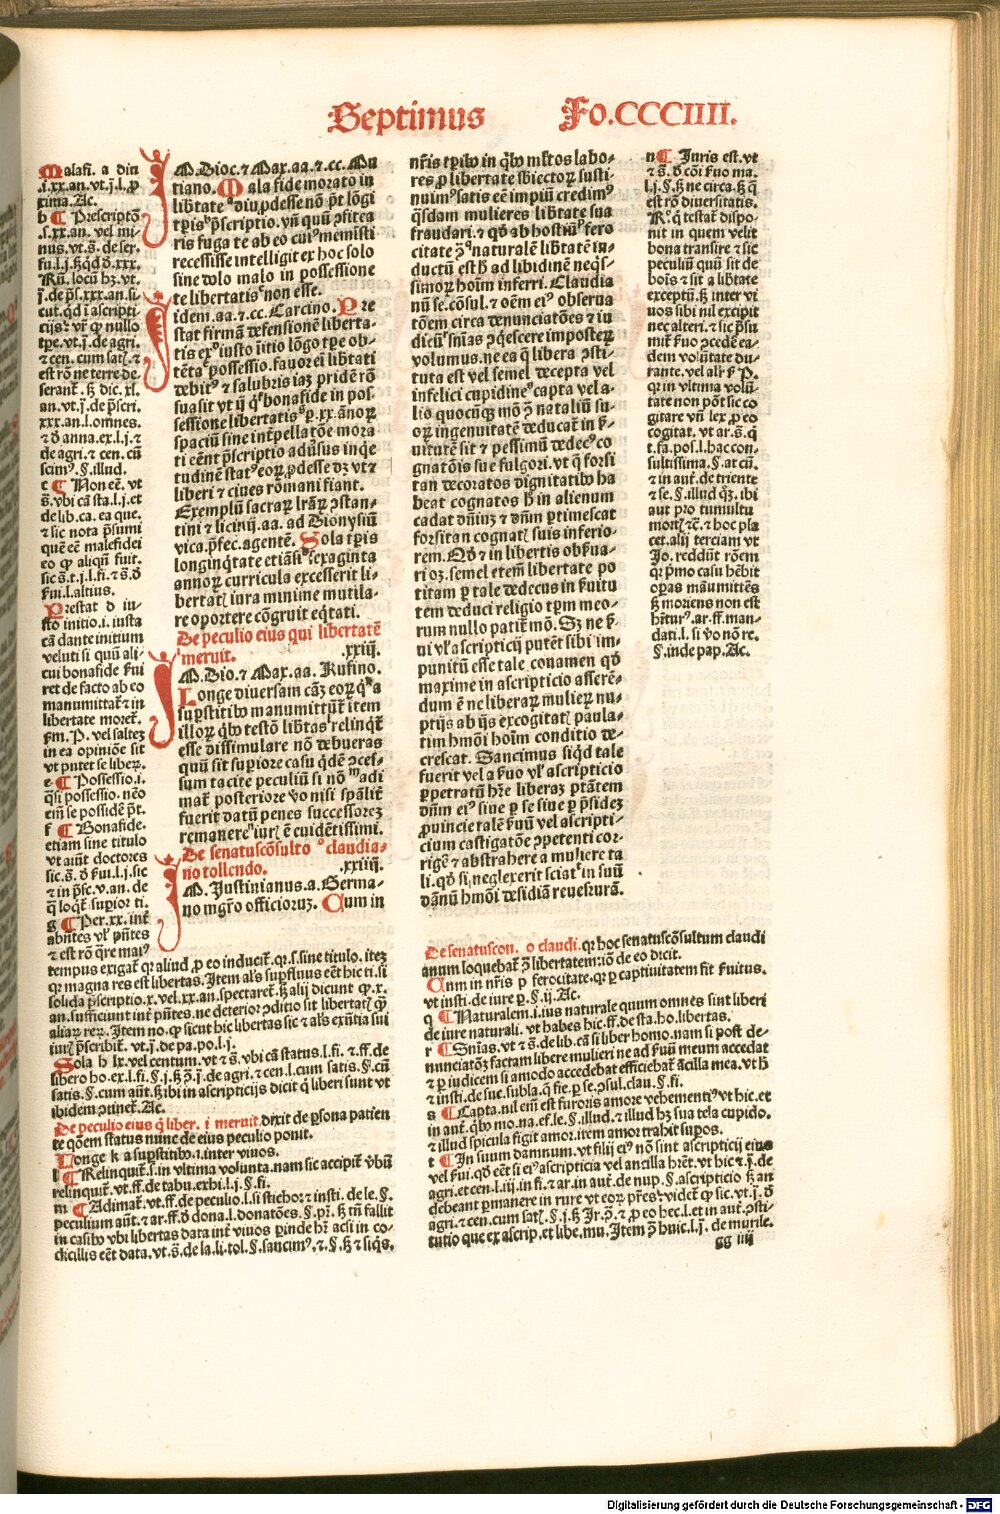 Septimus Fo.CCCIIII.
Malafi. a diu
.i.xx.an.vt.j.l.ꝓ
xima.Ac.
b ¶ Prescriptõ
.s.xx.an. vel mi-
nus.vt.s̄. de ser.
an.vt.j.de p̄scri.
xxx.an.l.omnes.
de agri.⁊ cen. cū
scimꝰ.§.illud.
c ¶ Non eē̄. vt
s̄.vbi cā sta.l.j.et
de lib.ca. ea que.
⁊ sic nota p̄sumi
quē eē malefidei
eo ꝙ aliquē fuit.
Prestat d in-
sto initio.i. iusta
cā dante initium
veluti si quū ali-
cui bonafide ẜui
ret de facto ab eo
manumittat᷑ ⁊ in
libertate moret᷑.
in ea opiniōe sit
vt putet se libeꝝ.
e ¶ Possessio.i.
q̄si possessio. nēo
em̄ se possidē p̄t.
f ¶ Bonafide.
etiam sine titulo
vt aiūt doctores
⁊ in p̄sc.v.an. de
q̄ loqt᷑ supior ti.
g ¶ Per.xx. int᷑
abn̄tes vl᷑ p̄ntes
⁊ est rō q̄re maiꝰ
M. Dioc.⁊ Max.aa.⁊.cc. Mu
tiano. Mala fide morato in
lib̄tate ᵃdiu,ꝓdesse nō p̄t lōgi
tꝑis ᵇp̄scriptio. vn̄ quū ꝓfitea
ris fuga te ab eo cuiꝰ memīsti
recessisse intelligit ex hoc solo
sine dolo malo in possessione
te libertatis ᶜnon esse.
idem.aa.⁊.cc. Carcino. Pre
stat firmā defensionē liberta-
tis ex ᵈiusto īitio lōgo tꝑe ob-
tēta ᵉpossessio. fauorei lib̄tati
debitꝰ ⁊ salubris iaꝫ pridē rō
suasit vt ij q̄ ᶠbonafide in pos
sessione libertatis ᵍꝑ.xx.ānoꝝ
spaciū sine int̄pellatōe mora
ti eēnt p̄scriptio aduꝰsus inq̄e
tudinē statꝰ eoꝝ ꝓdesse dꝫ vt ⁊
liberi ⁊ ciues romani fiant.
Exemplū sacraꝝ lr̄aꝝ ꝯstan-
tini ⁊ licinij.aa. ad Dionysiū
vica. p̄fec.agentē. Sola tꝑis
longinq̄tate etiāsi ʰsexaginta
annoꝝ curricula excesserit li-
bertatꝭ iura minime mutila-
re oportere cōgruit eq̄tati.
De peculio eius qui libertatē
meruit. .xxiij.
M. Dio.⁊ Max.aa. Rufino.
Longe diuersam cāꝫ eoꝝ q̄ ᵏa
suꝑstitibꝰ manumittūt᷑ item
illoꝝ q̄bꝰ testō lib̄tas ˡrelinq̄t᷑
esse dissimulare nō debueras
quū sit supiore casu q̄dē ꝯces-
sum tacite peculiū si nō ᵐadi
mat᷑ posteriore ꝟo nisi spālit᷑
fuerit datū penes successores
remanere ⁿiurꝭ ē euidētissimi.
De senatuscōsulto ᵒclaudia-
no tollendo. .xxiiij.
M. Iustinianus.a. Germa-
no mgr̄o officioruꝫ. Cum in
nr̄is tꝑibꝰ in q̄bꝰ ml̓tos labo-
res ꝓ libertate sbiectoꝝ susti-
nuimꝰ satis eē impiū credimꝰ
q̄sdam mulieres lib̄tate sua
fraudari. ⁊ qd̄ ab hostiū ᵖfero
citate ꝯ ᑫnaturalē lib̄tatē in-
ductū est h̄ ad libidinē neq̄s-
simoꝝ hoīm inferri. Claudia
nū se.cōsul. ⁊ oēm eiꝰ obserua
tōem circa denunciatōes ⁊ iu
dicū ʳsnīas ꝯq̄escere imposteꝝ
volumus. ne ea q̄ libera ꝯsti-
tuta est vel semel decepta vel
infelici cupidine ˢcapta vel a-
lio quocūqꝫ mō ꝯ nataliū su-
oꝝ ingenuitatē deducat᷑ in ẜ-
uitutē sit ⁊ pessimū dedecꝰ co
gnatōis sue fulgori. vt q̄ forsi
tan decoratos dignitatibꝰ ha
beat cognatos h̄ in alienum
cadat dn̄iuꝫ ⁊ dn̄m ꝑtimescat
forsitan cognatꝭ suis inferio-
rem. Qd̄ ⁊ in libertis obẜua-
ri oꝫ. semel etem̄ libertate po
titam ꝑ tale dedecus in ẜuitu
tem deduci religio tꝑm meo-
rum nullo patit᷑ mō. Sꝫ ne ẜ-
ui vl᷑ ascripticij putēt sibi im-
punitū esse tale ꝯnamen qd̄
maxime in ascripticio asserē-
dum ē ne liberaꝝ mulieꝝ nu-
ptijs ab ijs excogitatꝭ paula-
tim hmōi hoīm conditio de-
crescat. Sancimus siqd̄ tale
fuerit vel a ẜuo vl᷑ ascripticio
ꝑpetratū h̄re liberaꝫ ptātem
dn̄m eiꝰ siue ꝑ se siue ꝑ p̄sideꝫ
ꝓuincie talē ẜuū vel ascripti-
cium castigatōe ꝯpetenti cor-
rigē ⁊ abstrahere a muliere ta
li. qd̄ si neglexerit sciat ᵗin suū
dānū hmōi desidiā reuersurā.
n ¶ Iuris est. vt
⁊ s̄. d̄ cōi ẜuo ma.
l.j.§. sꝫ ne circa. sꝫ q̄
est rō diuersitatis.
R̄. q̄ testat᷑ dispo-
nit in quem velit
bona transire ⁊ sic
peculiū quū sit de
bois ⁊ sit a lib̄tate
exceptū. sꝫ inter vi
uos sibi nil excipit
nec alteri. ⁊ sic p̄su
mit᷑ ẜuo ꝯcedē ea-
dem volūtate du-
rante. vel alr̄ ẜ. P.
qr in vltima volū-
tate non pōt sic co
gitare vn̄ lex ꝓ eo
cogitat. vt ar. s̄. q̄
t.fa.pos.l. hac con-
sultissima.§. at cū.
⁊ in aut̄. de triente
⁊ se.§. illud qꝫ. ibi
aut ꝓ tumultu
mortꝭ ⁊c̄. ⁊ hoc pla
cet. alij terciam vt
Io. reddūt rōem
qr p̄mo casu hēbit
oꝑas manumittēs
sꝫ moriens non est
hītur​ꝰ. ar. ff. man-
dati.l. si ꝟo nō re.
§. inde pap. Ac.
tempus exigat᷑ qr aliud ꝓ eo inducit᷑. qr.s.sine titulo. iteꝫ
qr magna res est libertas. Item al̓s suꝑfluus eēt hic ti. si
solida p̄scriptio.x.vel.xx.an.spectaret᷑. sꝫ alij dicunt ꝙ.x.
an.sufficiunt int᷑ p̄ntes. ne deterior ꝯditio sit libertatꝭ ꝙ̄
aliaꝝ reꝝ. Item no. ꝙ sicut hic libertas sic ⁊ al̓s exn̄tia sui
iurꝭ p̄scribit᷑. vt.j. de pa.po.l.j.
Sola h lx. vel centum. vt ⁊ s̄. vbi cā status.l.fi. ⁊ ff. de
libero ho. ex.l.fi.§.j. sꝫ ꝯ̄.j. de agri.⁊ cen.l.cum satis.§. cū
satis.§. cum aūt. sꝫ ibi in ascripticijs dicit q̄ liberi sunt vt
ibidem ꝯtinet᷑. Ac.
De peculio eius q̄ liber. i meruit. dixit de ꝑsona patien
te q̄oēm status nunc de eius peculio ponit.
Longe k a suꝑstitibꝰ.i.inter viuos.
l ¶ Relinquit᷑.s.in vltima volunta. nam sic accipit᷑ ꝟbū
relinquit᷑. vt. ff. de tabu. exhi.l.j.§.fi.
m ¶ Adimat᷑. vt. ff. de peculio.l. si stichoꝝ ⁊ insti. de le.§.
peculium aūt. ⁊ ar. ff. d̄ dona.l. donatōes.§. pr̄. sꝫ tn̄ fallit
in casibꝰ vbi libertas data int᷑ viuos ꝑinde hr̄ acsi in co-
dicillis eēt data. vt. s̄. de la.li.tol.§. sancimꝰ. ⁊.§. sꝫ ⁊ siq̄s.
De senatuscon. o claudi. qr hoc senatuscōsultum claudi
anum loquebat᷑ ꝯ̄ libertatem: iō de eo dicit.
Cum in nr̄is p ferocitate. qr ꝑ captiuitatem fit ẜuitus.
vt insti. de iure ꝑ.§.ij. Ac.
q ¶ Naturalem.i.ius naturale quum omnes sint liberi
de iure naturali. vt habes hic. ff. de sta.ho. libertas.
r ¶ Snīas. vt ⁊ s̄. de lib.cā si liber homo. nam si post de-
nunciatōꝫ factam libere mulieri ne ad ẜuū meum accedat
⁊ ꝑ iudicem si amodo accedebat efficiebat᷑ ācilla mea. vt h̄
⁊ insti. de suc. subla. q̄ fie. ꝑ se. ꝯsul. clau.§.fi.
s ¶ Capta. nil em̄ est furoris amore vehementiꝰ vt hic. et
in aut̄. q̄bꝰ mo. na. ef. le.§. illud. ⁊ illud hꝫ sua tela cupido.
⁊ illud spicula figit amor. item amor trahit suꝑos.
t ¶ In suum damnum. vt filij eiꝰ nō sint ascripticij eius
vel ẜui. qd̄ eēt si eiꝰ ascripticia vel ancilla hr̄et. vt hic ⁊.j. de
agri. et cen.l.iij. in fi. ⁊ ar. in aut̄. de nup.§. ascripticio sꝫ an
debeant ꝑmanere in rure vt eoꝝ pr̄es: videt᷑ ꝙ sic. vt.j. d̄
agri. ⁊ cen. cum satꝭ.§.j. sꝫ Ir. ꝯ̄. ⁊ ꝓ eo hec.l. et in aut̄. ꝯsti-
tutio que ex ascrip. et libe. mu. Item ꝯ̄ huic.l.j. de murile.
gg iiij
Digitalisierung gefördert durch die Deutsche Forschungsgemeinschaft - DFG